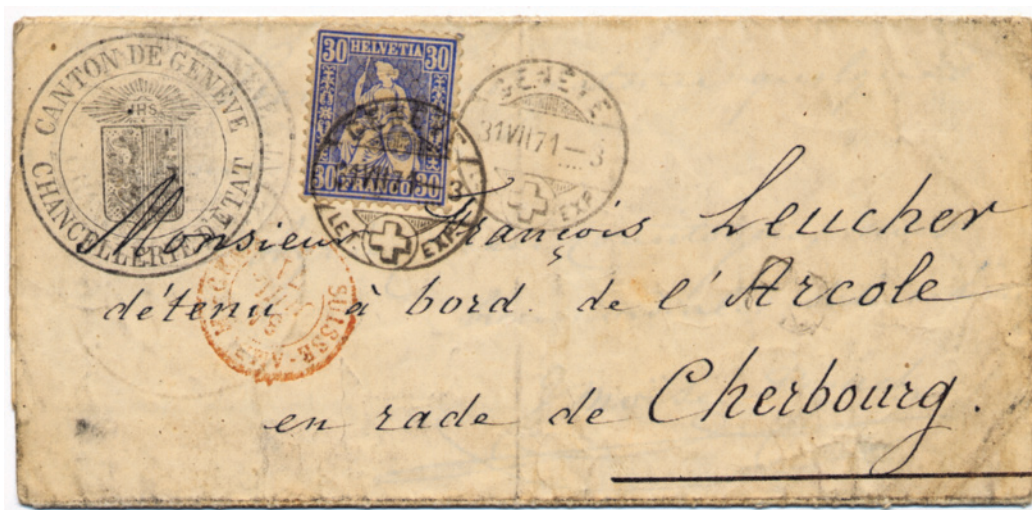 CANTON DE GENÈVE
CHANCELLERIE D'ETAT
JHS
30 HELVETIA 30
30 FRANCO 30
GENÈVE
31 VII 71 - 3
EXP.
GENÈVE
3
LET. EXP.
SUISSE-
Monsieur François Leucher
détenu à bord de l'Arcole
en rade de Cherbourg.